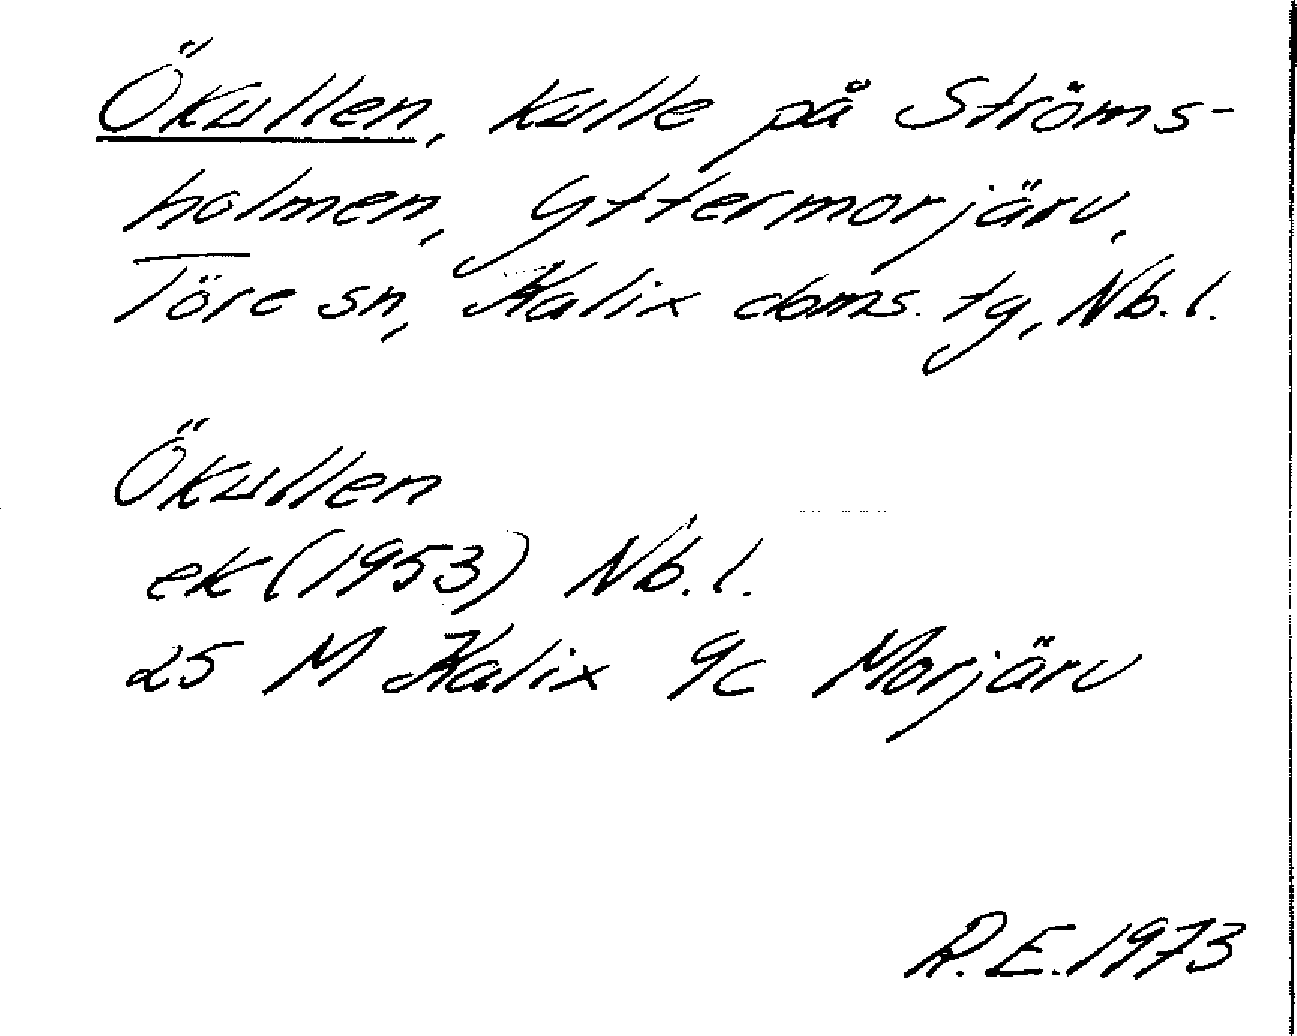 Ökullen, kulle på Ströms-
holmen, Yttermorjärv,
Töre sn, Kalix doms. tg, Nb. l.
Ökullen
ek (1953) Nb. l.
25 M Kalix 9c Morjärv
R. E. 1973